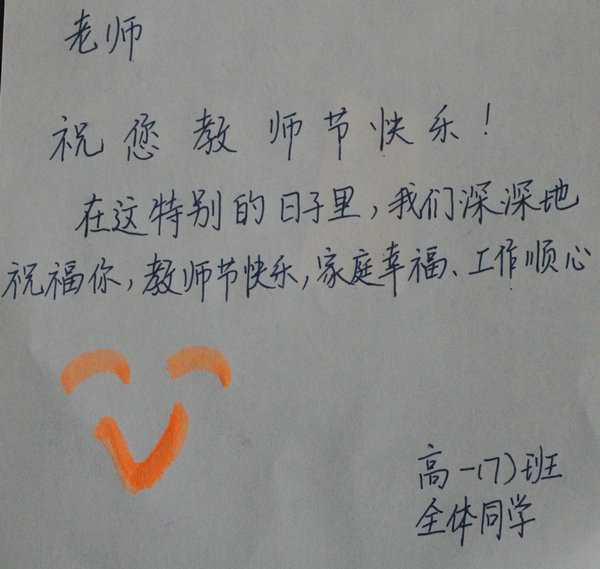 老师
祝您教师节快乐！
在这特别的日子里，我们深深地
祝福你，教师节快乐，家庭幸福、工作顺心
高一(7)班
全体同学